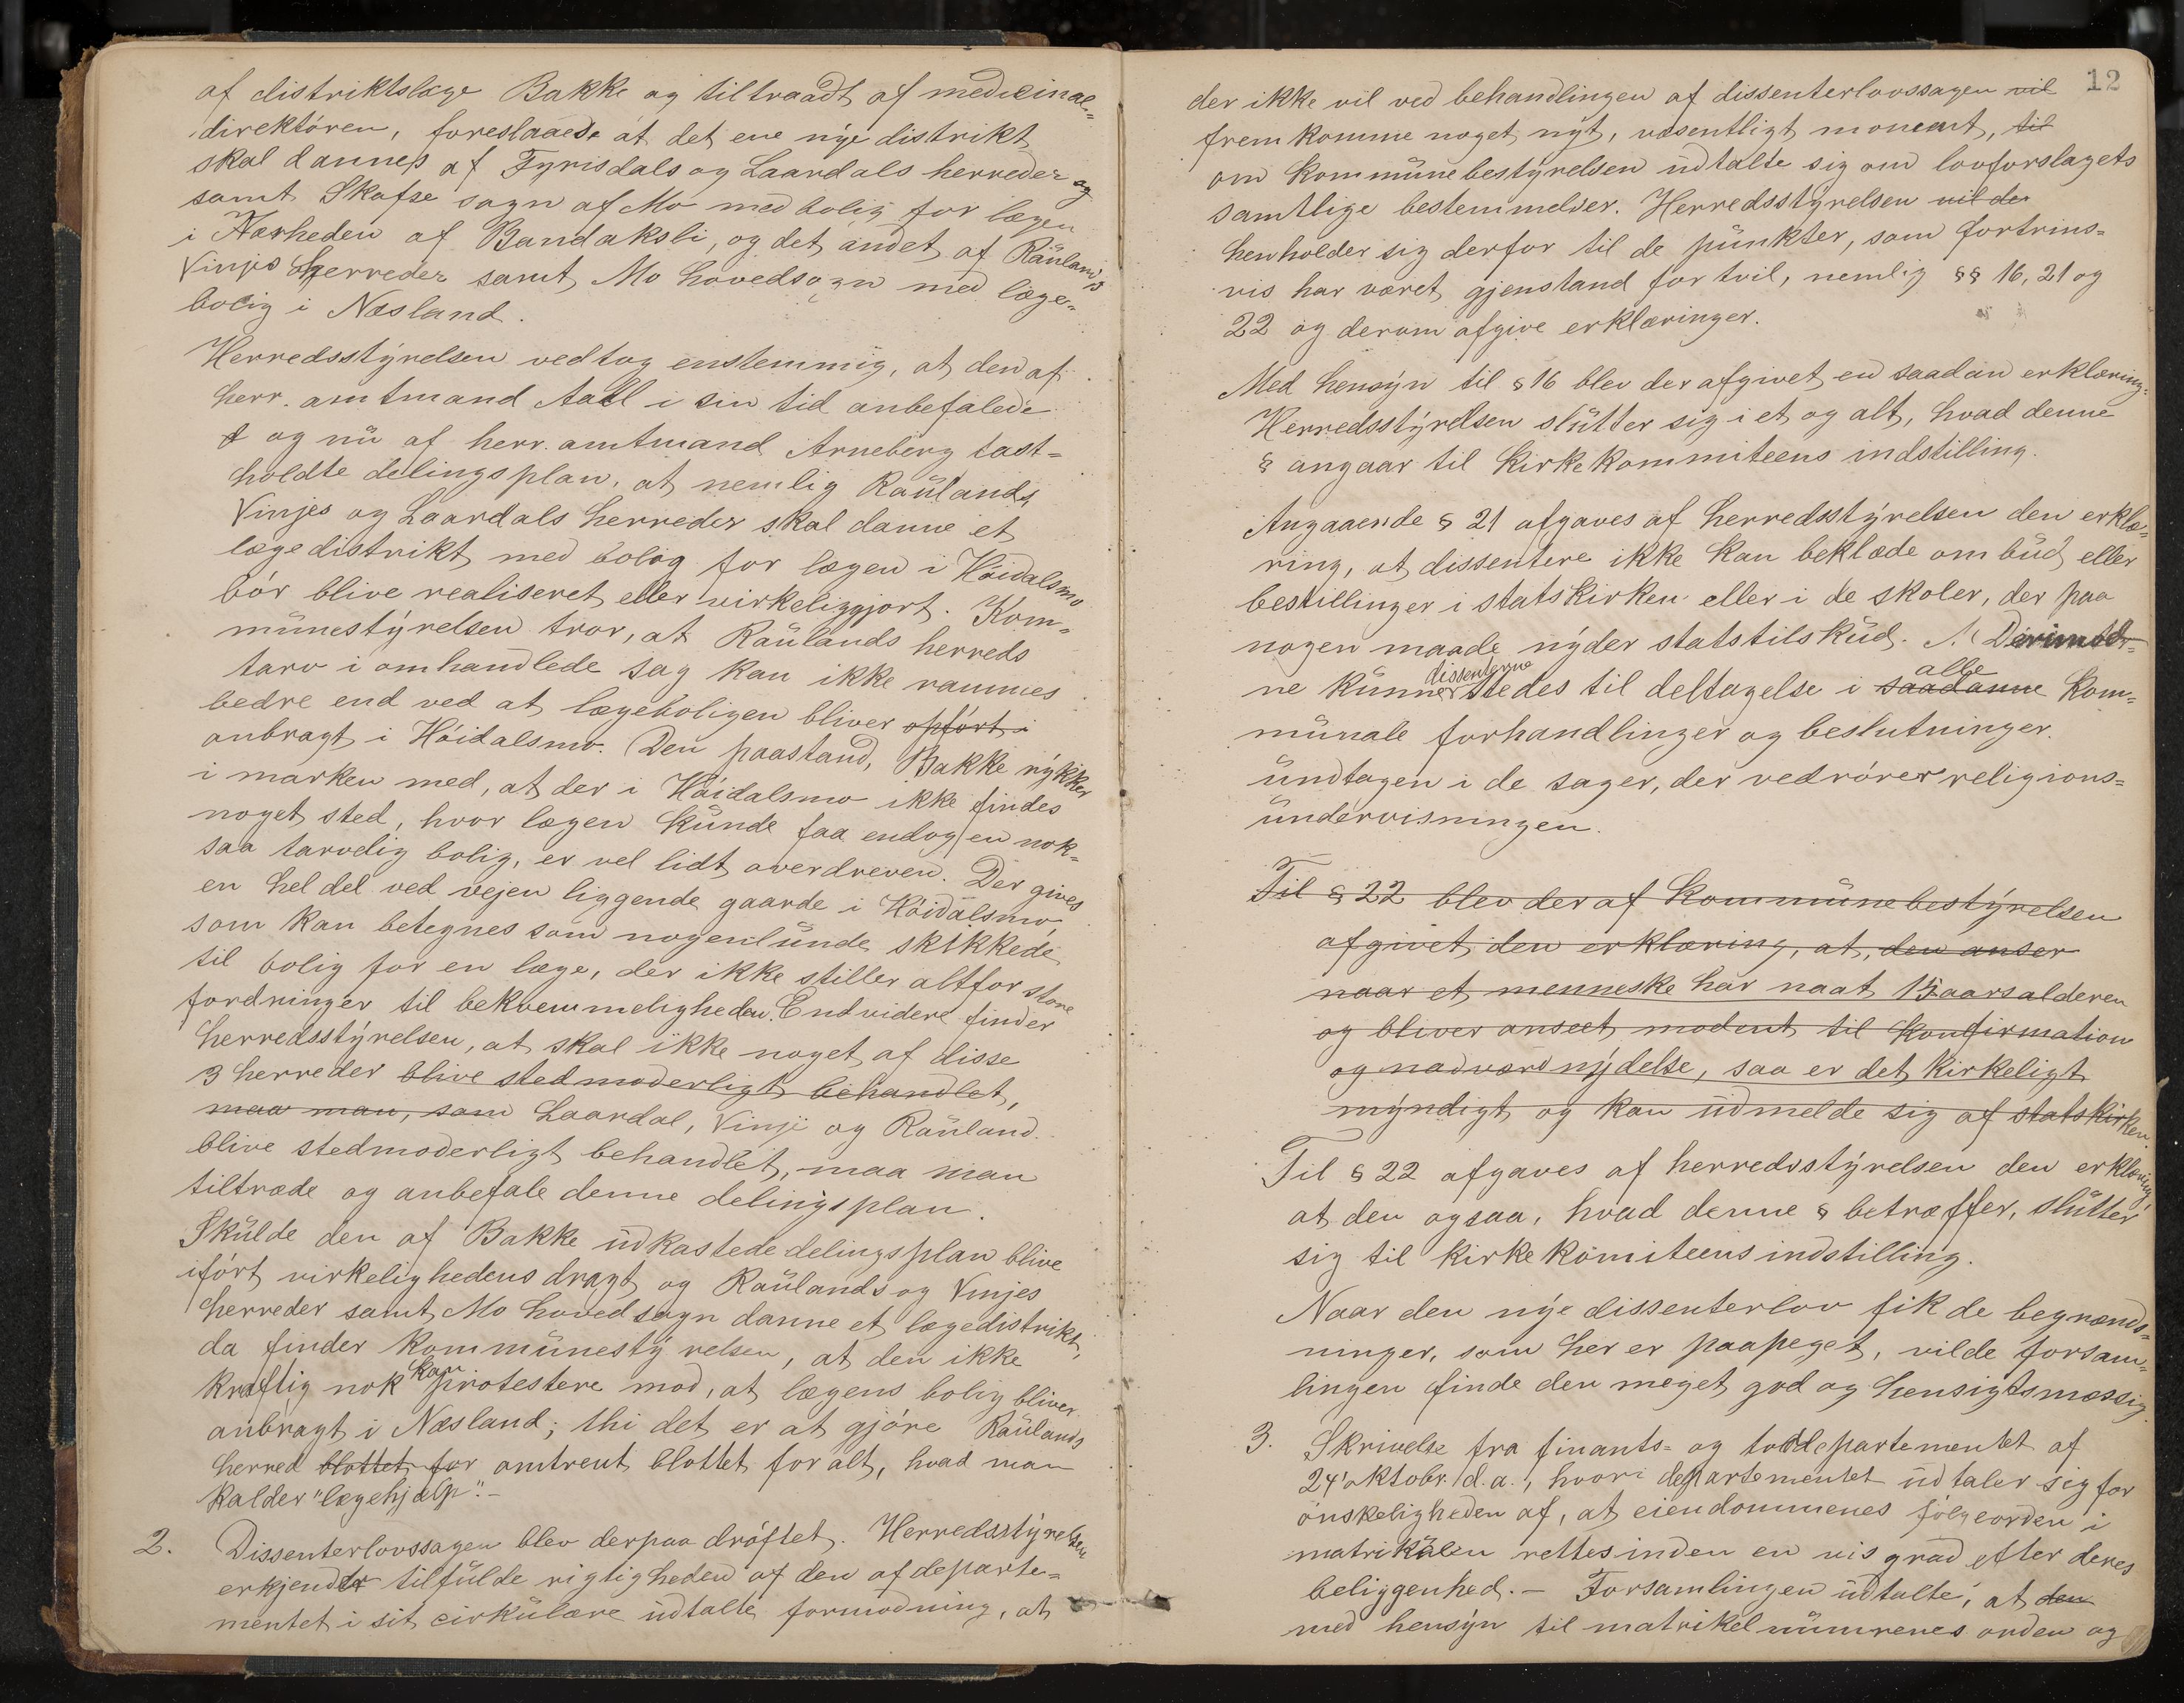 af distriktslæge Bakke og tiltraadt af medicinal=
direktören, foreslaaede at det ene nye distrikt
skal dannes af Fyrisdals og Laardals herreder og
samt Skafse sogn af Mo med bolig for lægen
i Nærheden af Bandaksli, og det andet af Raulands
Vinjes herreder samt Mo hovedsogn med læge=
bolig i Næsland.
Herredsstyrelsen vedtog enstemmig, at den af
herr. amtmand Aall i sin tid anbefalede
og nu af herr. amtmand Arneberg fast=
holdte delingsplan, at nemlig Raulands
Vinjes og Laardals herreder skal danne et
lægedistrikt med bolig for lægen i Höidalsmo
bör blive realiseret eller virkeliggjort. Kom=
munestyrelsen tror, at Raulands herreds
tarv i omhandlede sag kan ikke rammes
bedre end ved at lægeboligen bliver opfört i
anbragt i Höidalsmo. Den paastand, Bakke rykker
i marken med, at der i Höidalsmo ikke findes
noget sted, hvor lægen kunde faa endog en nok=
saa tarvelig bolig, er vel lidt overdreven. Der gives
en hel del ved vejen liggende gaarde i Höidalsmo,
som kan betegnes som nogenlunde skikkede
til bolig for en læge, der ikke stiller altfor store
fordninger til bekvemmeligheden. Endvidere finder
herredsstyrelsen, at skal ikke noget af disse
3 herreder blive stedmoderligt behandlet,
maa man, som Laardal, Vinje og Rauland
blive stedmoderligt behandlet, maa man
tiltræde og anbefale denne delingsplan.
Skulde den af Bakke udkastede delingsplan blive
ifört virkelighedens dragt og Raulands og Vinjes
herreder samt Mo hovedsogn danne et lægedistrikt,
da finder kommunestyrelsen, at den ikke
kraftig nok kan protestere mod, at lægens bolig bliver
anbragt i Næsland; thi det er at gjöre Raulands
herred blottet for omtrent blottet for alt, hvad man
kalder "lægehjælp".-
2. Dissenterlovssagen blev derpaa dröftet. Herredsstyrelsen
erkjender tilfulde rigtigheden af den af departe=
mentet i sit cirkulære udtalte formodning, at
12
der ikke vil ved behandlingen af dissenterlovssagen vil
fremkomme noget nyt, væsentligt moment, til
om kommunebestyrelsen udtalte sig om lovforslagets
samtlige bestemmelser. Herredsstyrelsen vil der
henholder sig derfor til de punkter, som fortrins=
vis har været gjenstand for tvil, nemlig §§ 16, 21 og
22 og derom afgive erklæringer.
Med hensyn til § 16 blev der afgivet en saadan erklæring:
Herredsstyrelsen slutter sig i et og alt, hvad denne
§ angaar til kirkekommiteens indstilling.
Angaaende § 21 afgaves af herredsstyrelsen den erklæ=
ring, at dissentere ikke kan beklæde ombud eller
bestillinger i statskirken eller i de skoler, der paa
nogen maade nyder statstilskud. Derimod
ne kunne dissenterne stedes til deltagelse i saadanne alle kom=
munale forhandlinger og beslutninger.
undtagen i de sager, der vedrörer religions=
undervisningen.
Til § 22 blev der af kommunebestyrelsen
afgivet den erklæring, at, den anser
naar et menneske har naat 15 aarsalderen
og bliver anseet modent til konfirmation
og nadverd nydelse, saa er det kirkeligt
myndigt og kan udmelde sig af statskirken.
Til § 22 afgaves af herredsstyrelsen den erklæring,
at den ogsaa, hvad denne § betræffer, slutter
sig til kirkekomiteens indstilling.
Naar den nye dissenterlov fik de begrænds=
ninger, som her er paapeget, vilde forsam=
lingen finde den meget god og hensigtsmæssig.
3. Skrivelse fra finants= og tolddepartementet af
24' oktobr. d.a., hvori departementet udtaler sig for
önskeligheden af, at eiendommenes fölgeorden i
matrikulen rettes inden en vis grad efter deres
beliggenhed. - Forsamlingen udtalte, at den
med hensyn til matrikelnumrenes orden og